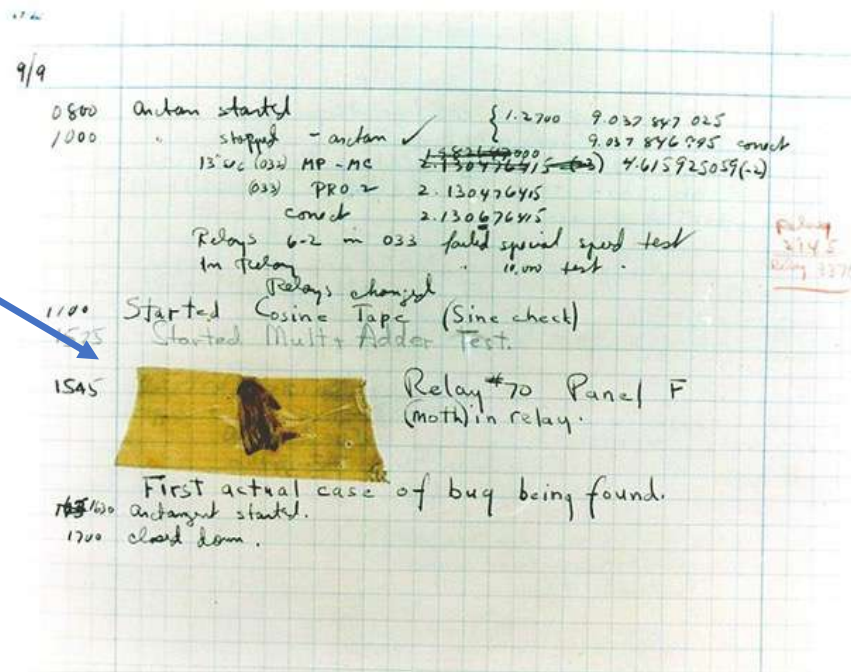 9/9
0800 arctan started { 1.2700 9.037 847 025
1000 " stopped - arctan ✓ 9.037 846 995 correct
13"uc (032) MP-MC 2.130476415 (-3) 4.615925059(-2)
(033) PRO 2 2.130476415
correct 2.130676415
Relays 6-2 in 033 failed special speed test
In Relay " 10,000 test.
Relays changed
1100 Started Cosine Tape (Sine check)
1525 Started Mult+ Adder Test.
1545 Relay #70 Panel F
(moth) in relay.
First actual case of bug being found.
1630 arctangent started.
1700 closed down.
Relay
3370